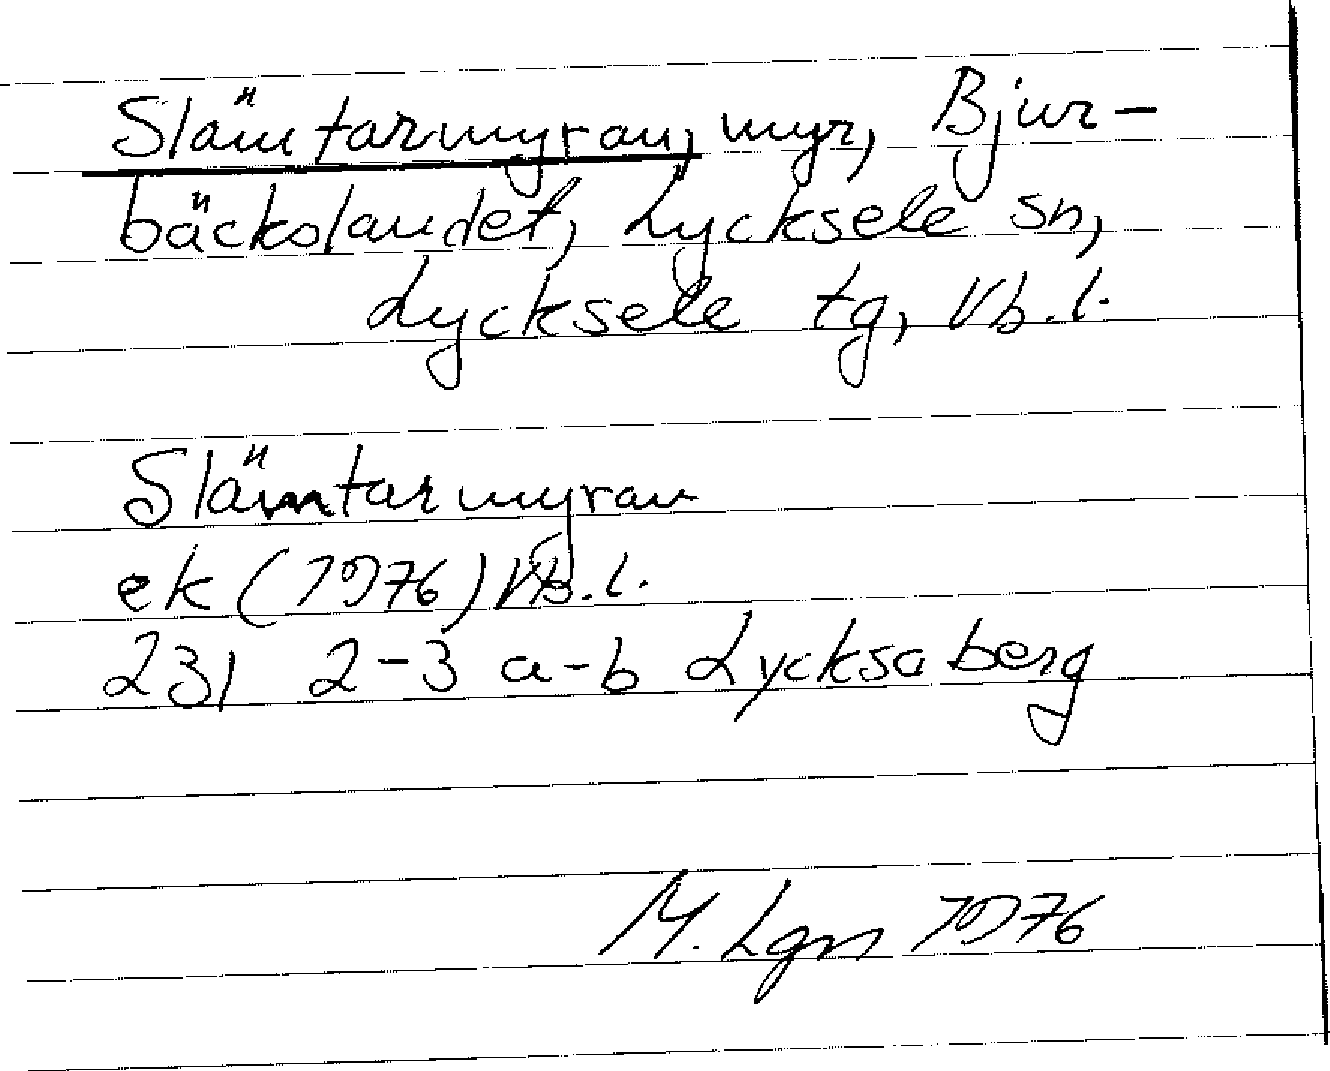 Slämtarmyran, myr, Bjur-
bäckslandet, Lycksele sn,
Lycksele tg, Vb.l.
Slämtarmyran
ek (1976) Vb.l.
231 2-3 a-b Lycksaberg
M. Lgn 1976